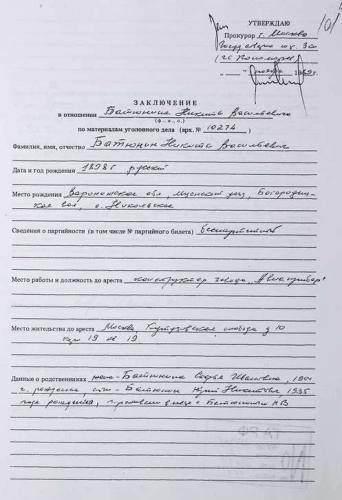 101
УТВЕРЖДАЮ
Прокурор г. Москвы
ЗАКЛЮЧЕНИЕ
в отношении Батюнина Никита Васильевича
(ф., и., о.)
по материалам уголовного дела (арх. № 10274)
Фамилия, имя, отчество Батюнин Никита Васильевич
Дата и год рождения 1898 г русский
Место рождения Воронежская обл,
с. Никольское
Сведения о партийности (в том числе № партийного билета) беспартийный
Место работы и должность до ареста конструктор завода "Авиаприбор"
Место жительства до ареста Москва, Кутузовская слобода д 10
19 19
Данные о родственниках жена - Батюнина Софья Ивановна, 1904
г. рождения сын - Батюнин Юрий Никитович 1935
года рождения, Батюниным НВ